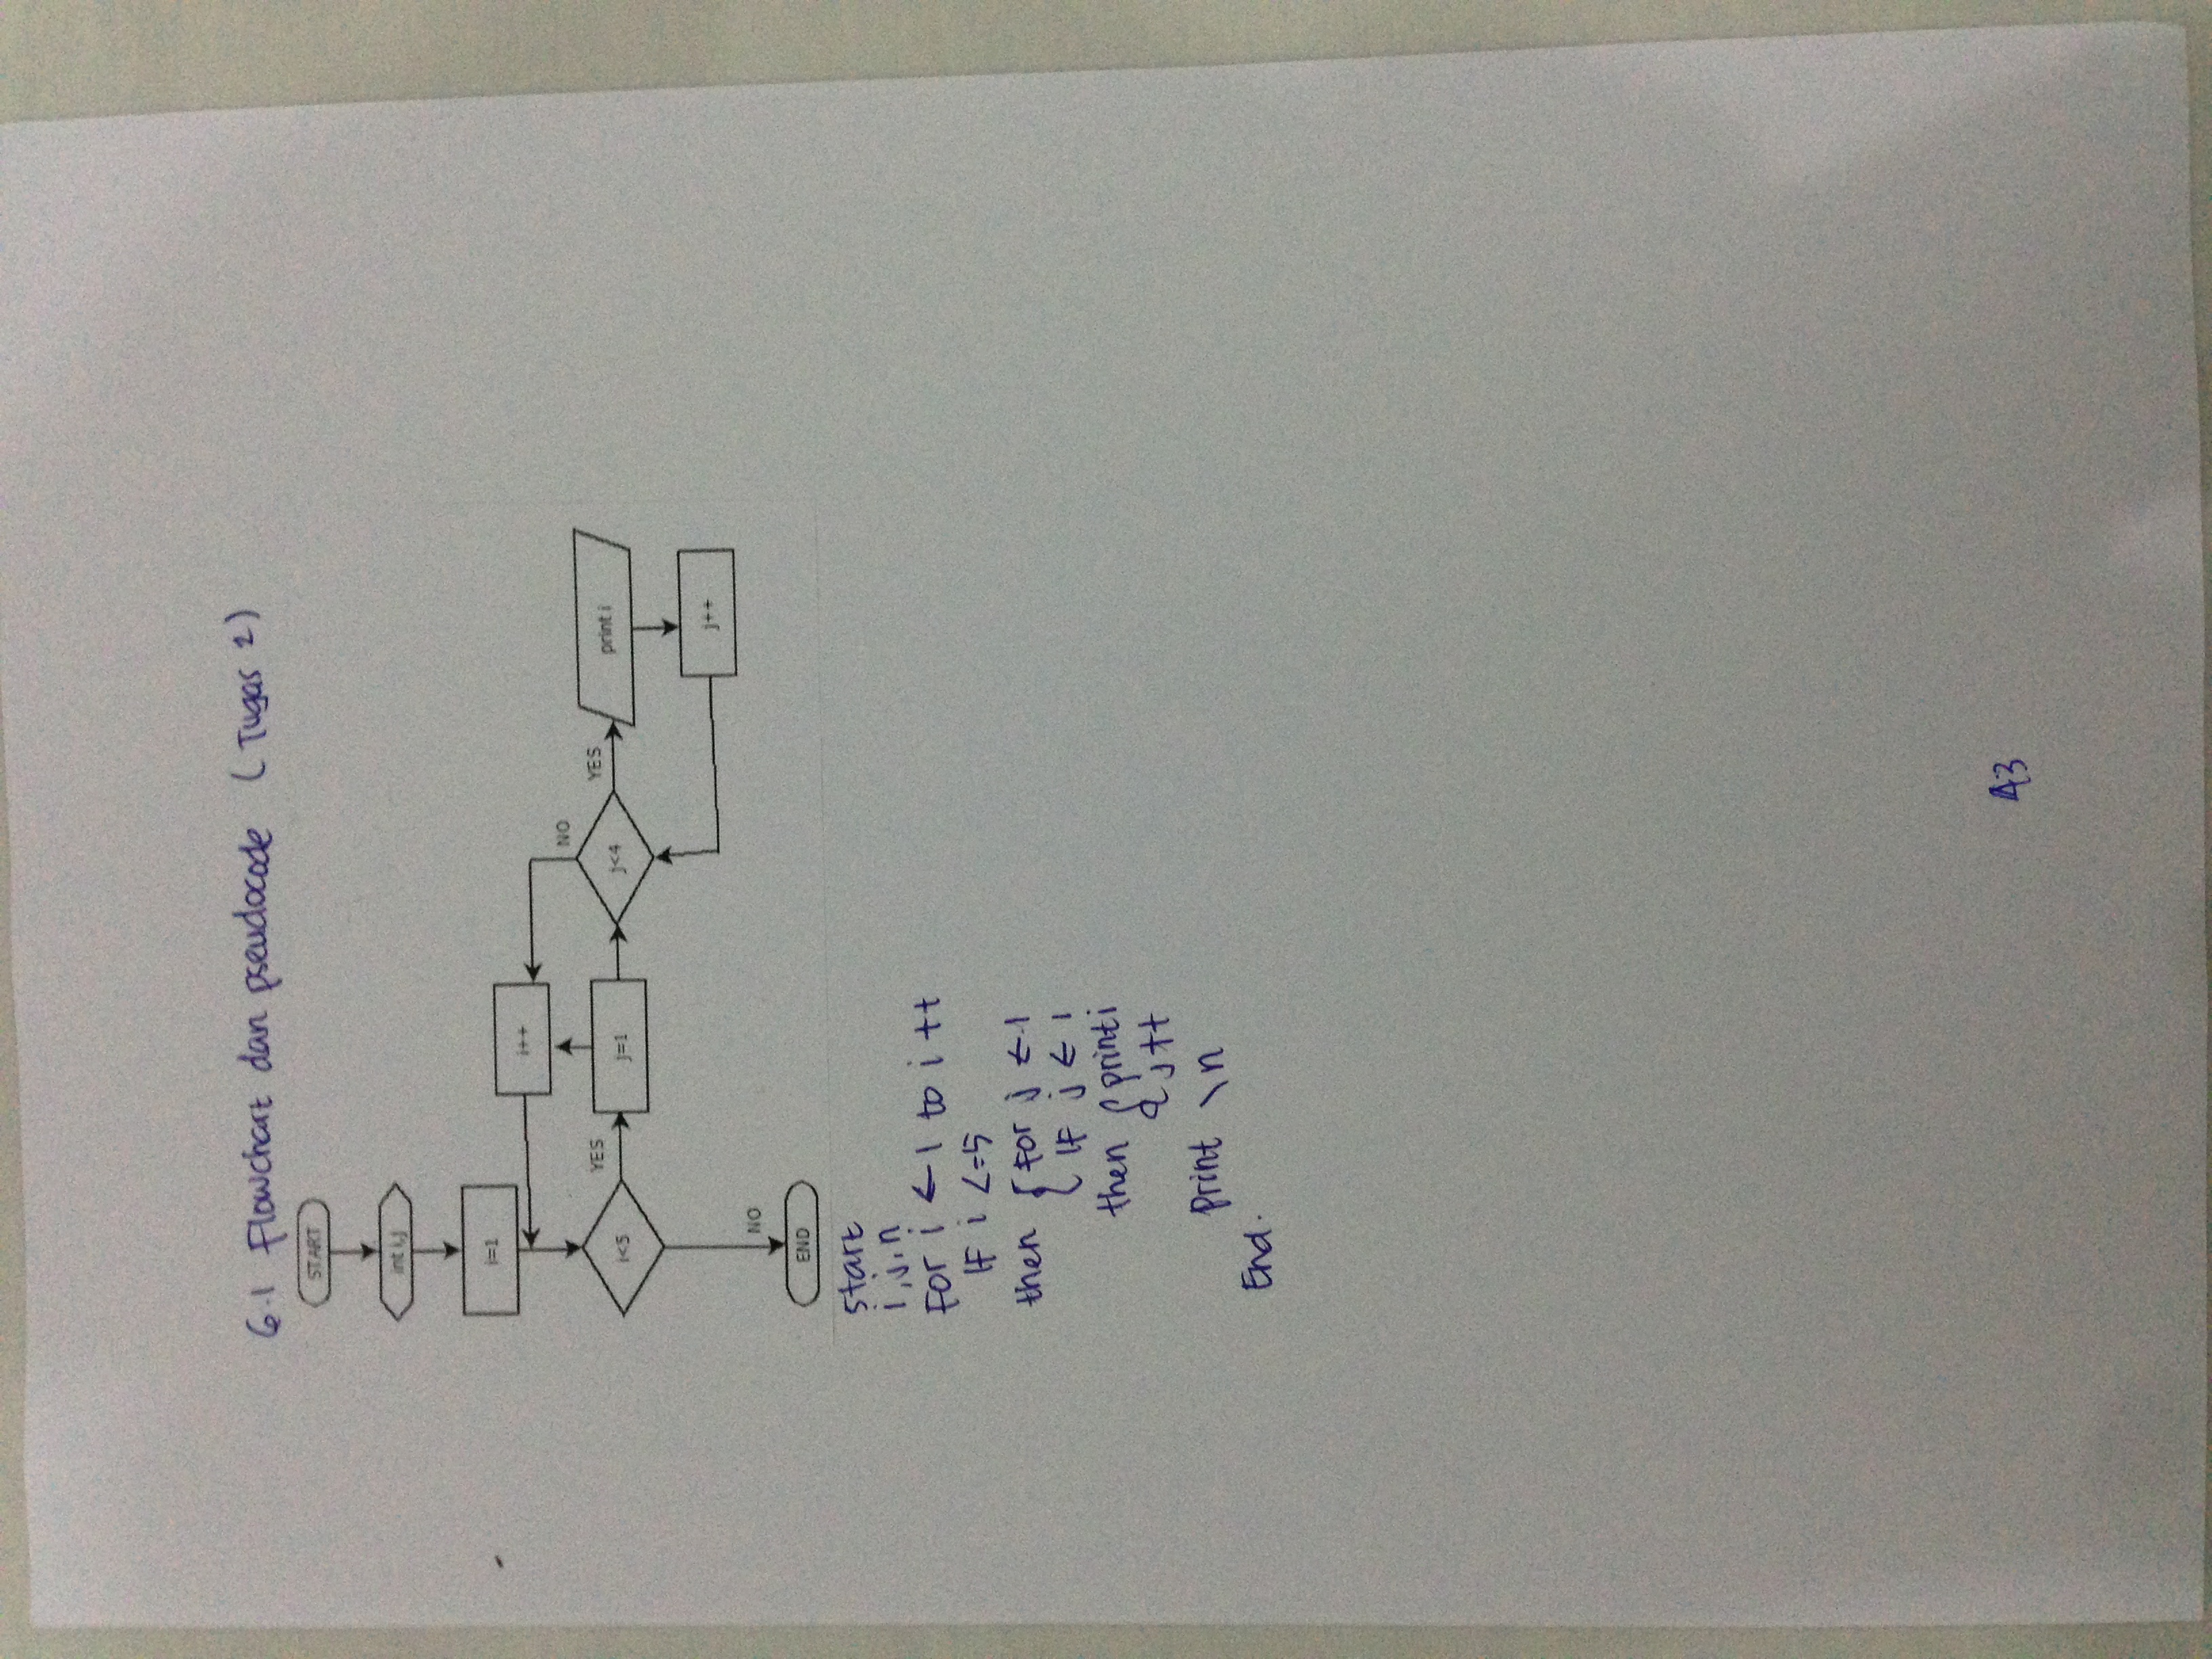 6.1 Flowchart dan pseudocode (Tugas 2)
START
int i,j
i=1
i++
NO
i<5
YES
j=1
j<4
YES
print i
j++
NO
END
start
i, j, n
For i ← 1 to i ++
IF i <=5
then { For j ← 1
{ IF j ← 1
then { print i
{ j++
print \n
End.
43